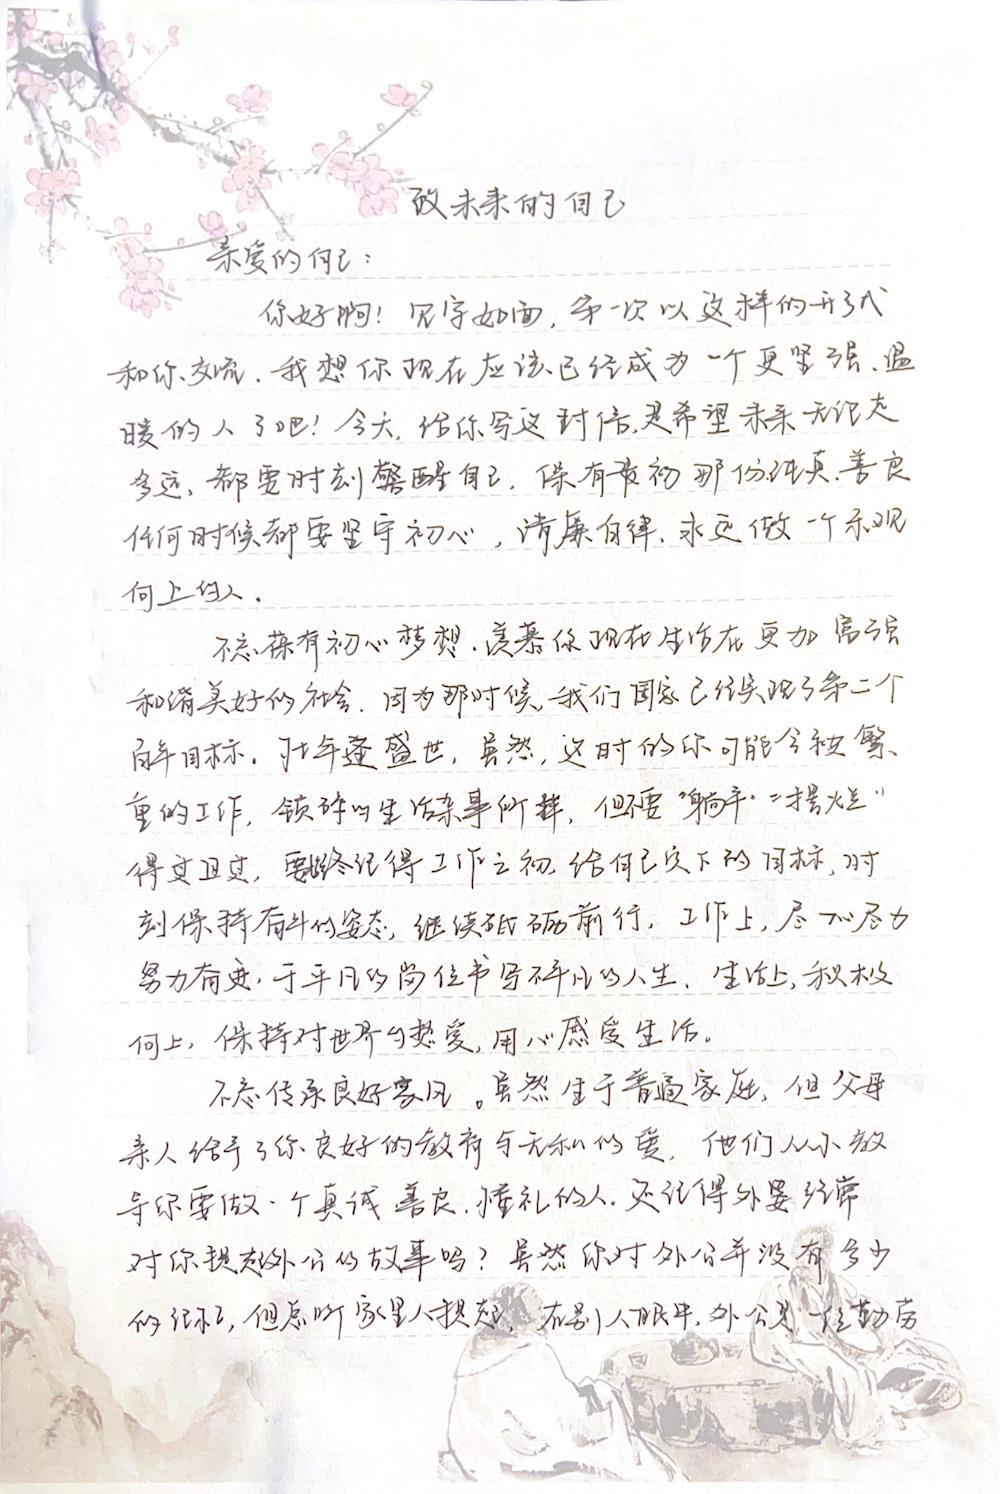 致未来的自己
亲爱的自己:
你好啊!见字如面,第一次以这样的形式
和你交流,我想你现在应该已经成为一个更坚强、温
暖的人了吧!今天,给你写这封信,是希望未来无论走
多远,都要时刻警醒自己,保有最初那份纯真、善良
任何时候都要坚守初心,清廉自律,永远做一个乐观
向上的人.
不忘葆有初心梦想.羡慕你现在生活在更加富强
和谐美好的社会.因为那时候,我们国家已经实现了第二个
百年目标.壮年逢盛世,虽然,这时的你可能会被繁
重的工作,琐碎的生活杂事所扰,但不要"躺平""摆烂"
得过且过,要始终记得工作之初给自己定下的目标,时
刻保持奋斗的姿态,继续砥砺前行.工作上,尽心尽力
努力奋进,于平凡的岗位书写不平凡的人生.生活上,积极
向上,保持对世界的热爱,用心感受生活。
不忘传承良好家风。虽然生于普通家庭,但父母
亲人给予了你良好的教育与无私的爱,他们从小教
导你要做一个真诚善良、懂礼的人.还记得外婆经常
对你提起外公的故事吗?虽然你对外公并没有多少
的记忆,但总听家里人提起,在别人眼中,外公是一位勤劳